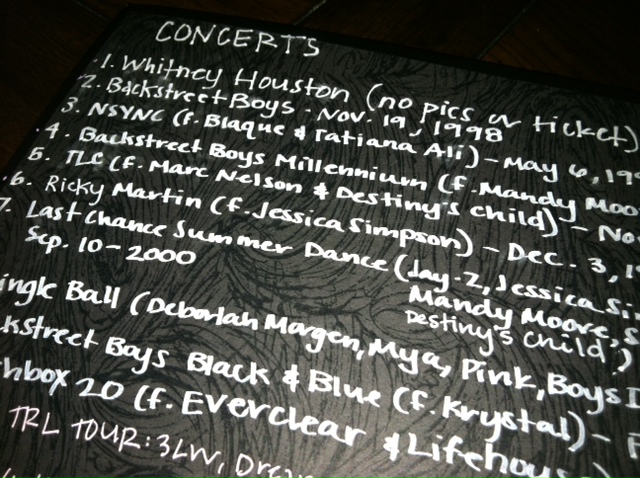 CONCERTS
1. Whitney Houston (no pics or ticket)
2. Backstreet Boys - Nov. 19, 1998
3. NSYNC (f. Blaque & Tatiana Ali) - May 6, 199
4. Backstreet Boys Millennium (f. Mandy Moo
5. TLC (f. Marc Nelson & Destiny's Child) - No
6. Ricky Martin (f. Jessica Simpson) - Dec. 3, 1
7. Last Chance Summer Dance (Jay-Z, Jessica Si
Sep. 10 - 2000 Mandy Moore, S
Destiny's Child)
ingle Ball (Deborah Morgen, Mya, Pink, Boys I
kstreet Boys Black & Blue (f. Krystal) - F
hbox 20 (f. Everclear & Lifehouse)
TRL TOUR: 3LW, Dre